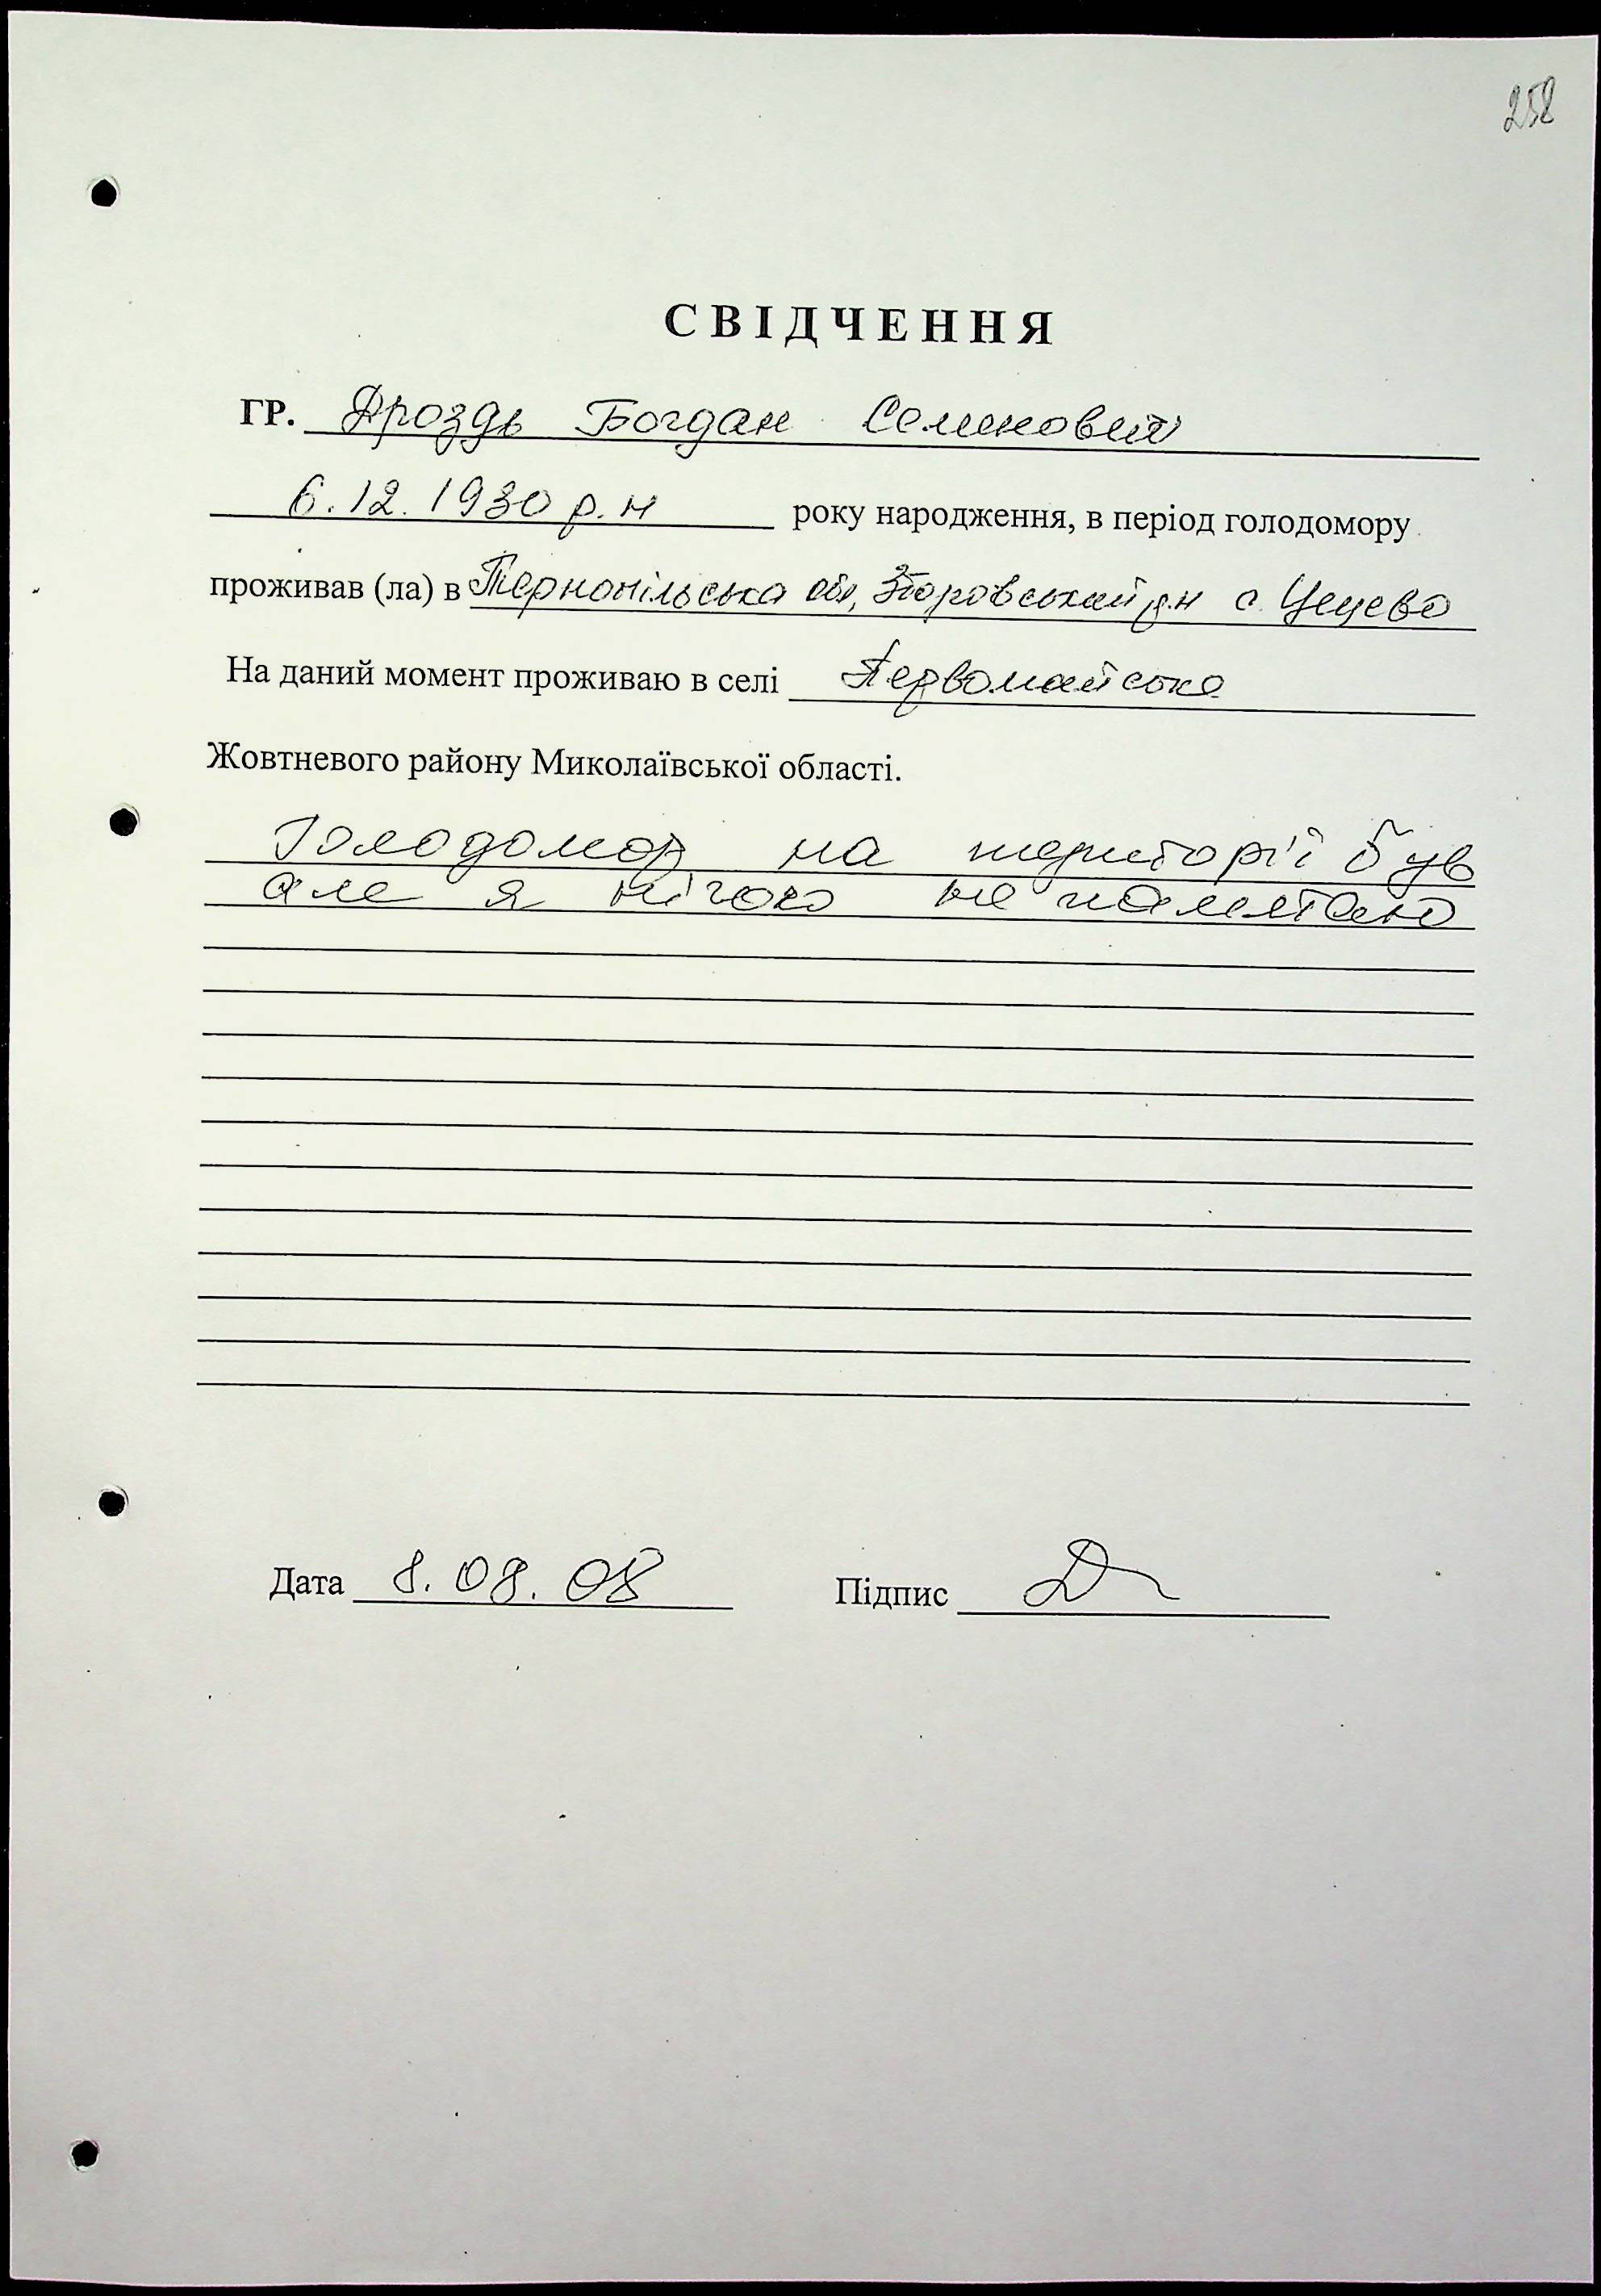 258
СВІДЧЕННЯ
ГР. Дроздь Богдан Семенович
6.12.1930 р.н року народження, в період голодомору
проживав (ла) в Тернопільська обл, Зборовський р-н с. Цецево
На даний момент проживаю в селі Первомайське
Жовтневого району Миколаївської області.
Голодомор на території був
але я нічого не памятаю
Дата 8.08.08 Підпис